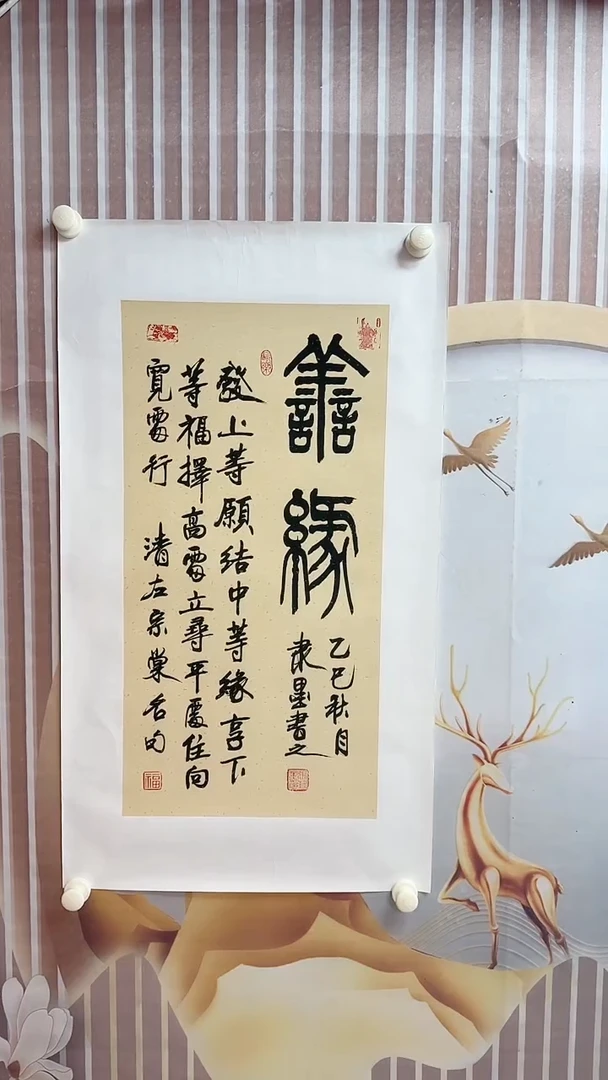 譱緣
乙巳秋月
墨書之
發上等願結中等緣享下
等福擇高處立尋平處住向
寬處行 清左宗棠名句
福